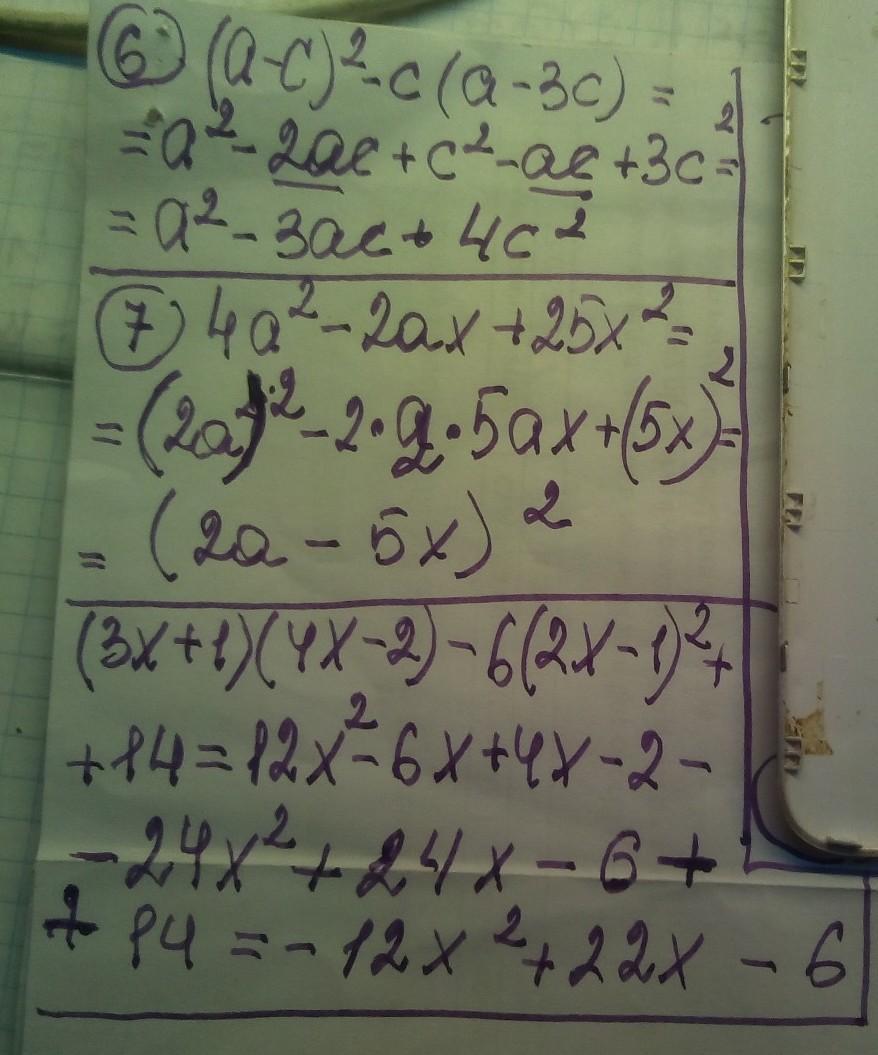 6 (a-c)²-c(a-3c)=
=a²-2ac+c²-ac+3c²=
=a²-3ac+4c²
7 4a²-2ax+25x²=
=(2a)²-2·a·5ax+(5x)²=
=(2a-5x)²
(3x+1)(4x-2)-6(2x-1)²+
+14=12x²-6x+4x-2-
-24x²+24x-6+
+14=-12x²+22x-6